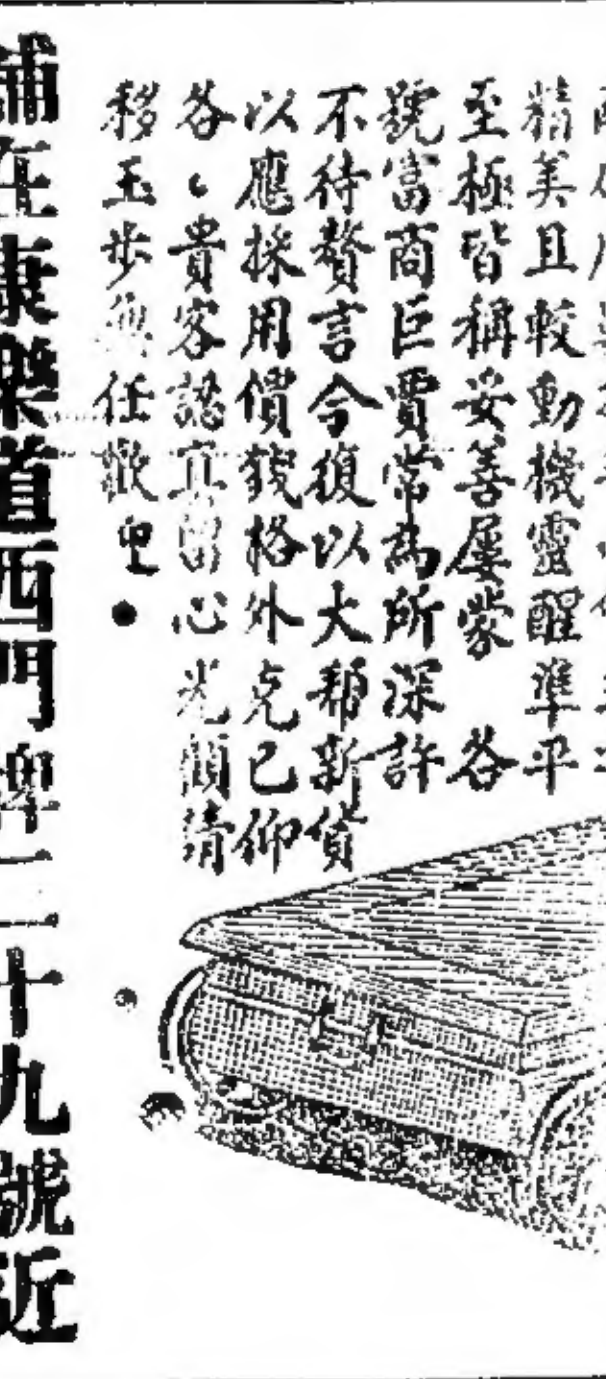 精美且較動機靈醒準平
至極皆稱妥善屢蒙 各
號富商巨賈常為所深許
不待贅言今復以大幫新貨
以應採用價錢格外克已仰
各〻貴客認真留心光顧請
移玉步無任歡迎
舖在康樂道西門牌二十九號近